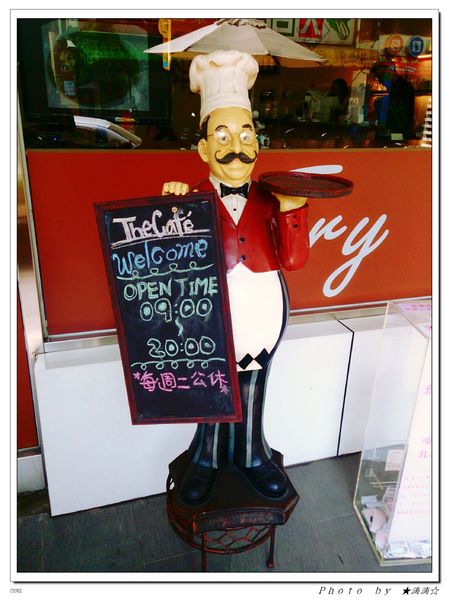 The Café
Welcome
OPEN TIME
09:00
~
20:00
*每週二公休*
ry
Photo by ★滴滴☆